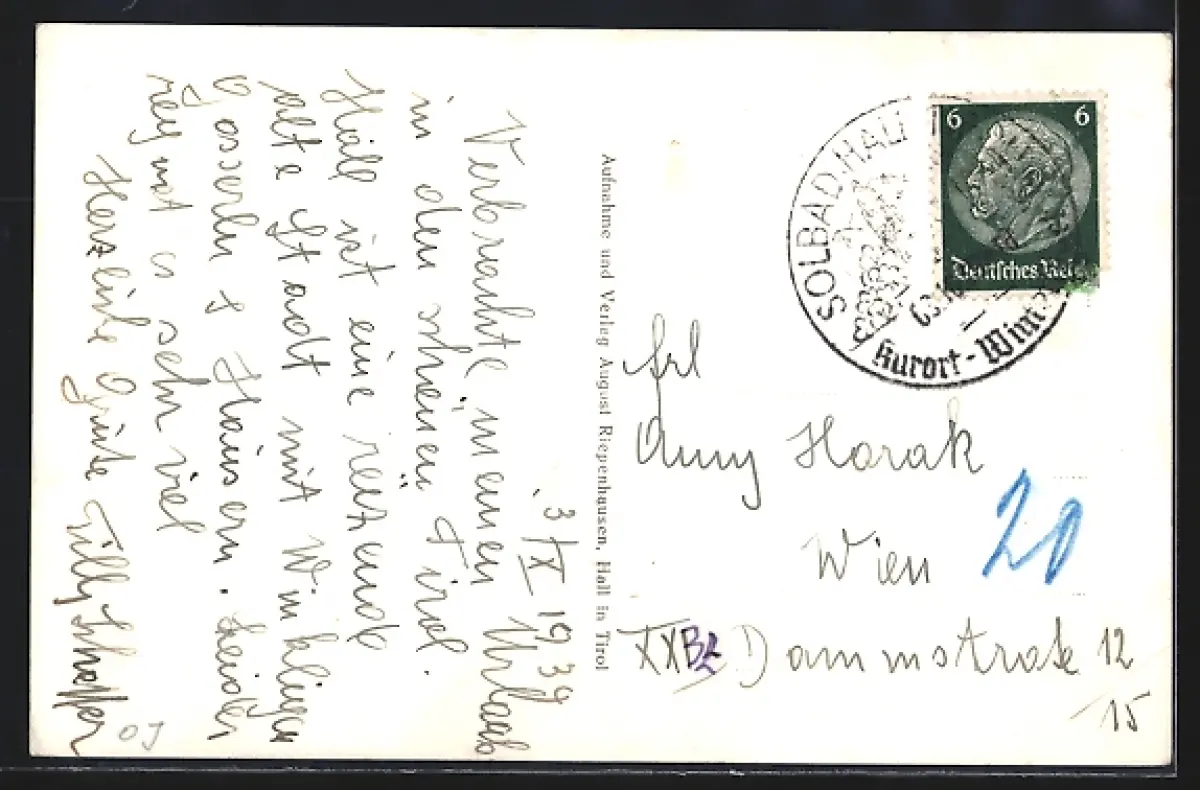 3/IX 1939
Verbrachte meinen Urlaub
in den schönen Tirol.
Hall ist eine reizende
alte Stadt mit Winkligen
Gasserln & Häusern. Leider
regnet s sehr viel
Herzliche Grüße Tilly
Aufnahme und Verlag August Riepenhausen, Hall in Tirol
SOLBAD HALL
Kurort - Wint
6 6
Deutsches Reich
Frl
Anny Horak
Wien
20
XX Dammstraße 12
/15